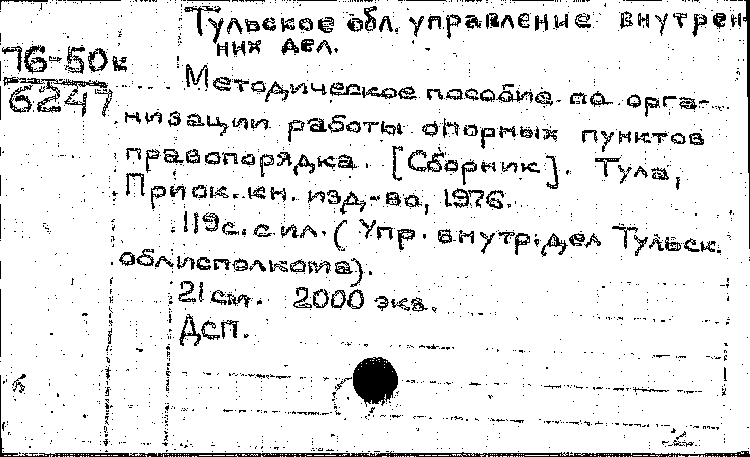 Тульское обл. управление внутрен-
них дел.
76-50к
6247
Методическое пособие по орга-
низации работы опорных пунктов
правопорядка. [Сборник]. Тула,
Приок. кн. изд-во, 1976.
119с. с ил. (Упр. внутр. дел Тульск.
облисполкома).
21см. 2000 экз.
ДСП.